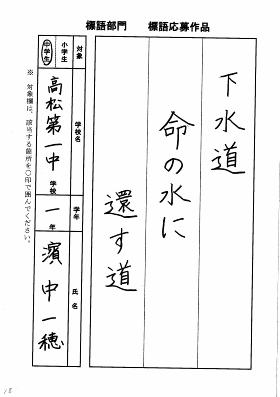 標語部門　標語応募作品
下水道
命の水に
還す道
対象
小学生
中学生
学校名
高松第一中 学校
学年
一 年
氏名
濱中一穂
※ 対象欄は、該当する箇所を○印で囲んでください。
18